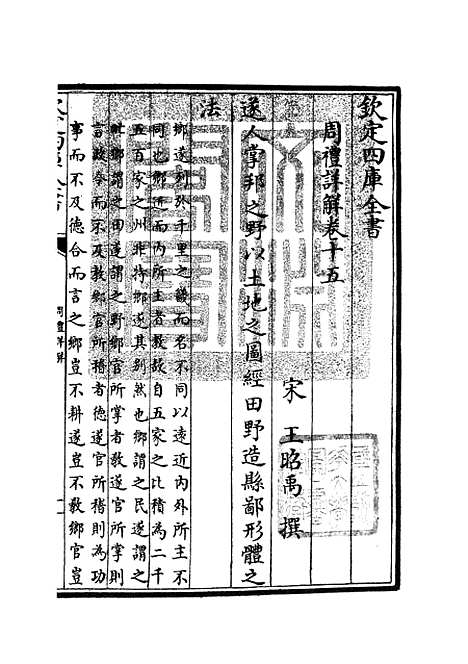 欽定四庫全書
周禮詳解卷十五
宋 王昭禹 撰
遂人掌邦之野以土地之圖經田野造縣鄙形體之
法
鄉遂列於千里之畿而名不同以遠近內外所主不
同也鄉近而內所主者教故自五家之比積為二千
五百家之州非特鄉遂其別然也鄉謂之民遂謂之
甿鄉謂之田遂謂之野鄉官所掌者教遂官所掌則
言政令而不及教鄉官所稽者德遂官所稽則為功
事而不及德合而言之鄉豈不耕遂豈不教鄉官豈
周禮詳解
一